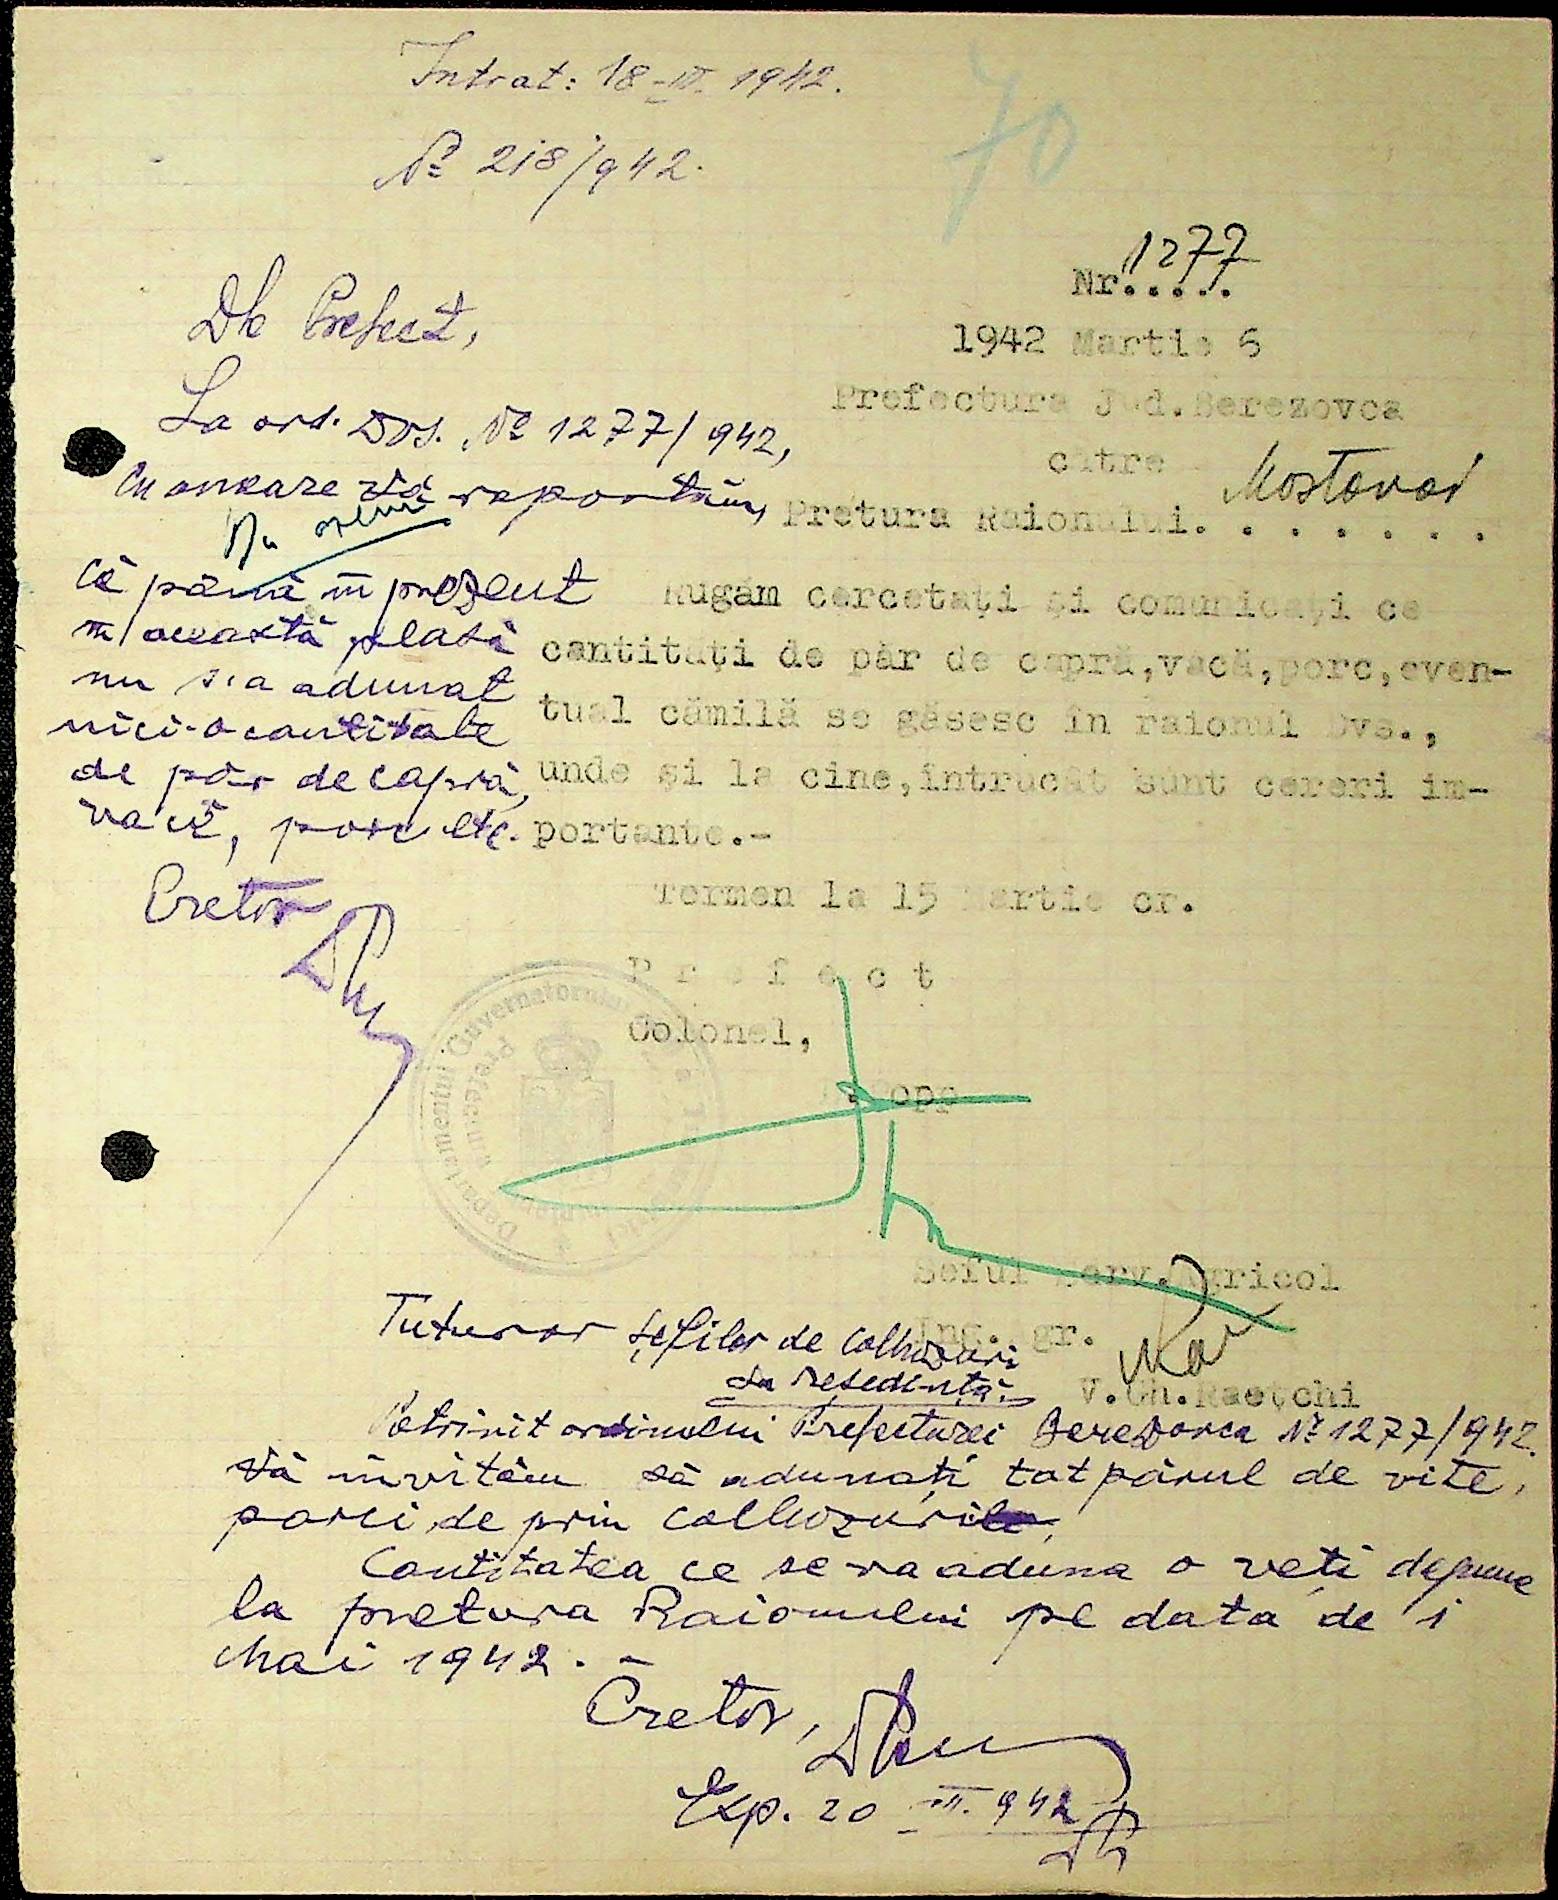 Intrat: 18-III. 1942.
№ 218/942.
70
Nr.....1277
1942 Martie 6
Prefectura Jud.Berezovca
către
Pretura Raionului. . . . . . . Mostovoi
Rugăm cercetați și comunicați ce
cantități de păr de capră,vacă,porc,even-
tual cămilă se găsesc în raionul Dvs.,
unde și la cine,întrucât sunt cereri im-
portante.-
Termen la 15 Martie cr.
P r e f e c t
Colonel,
Popp
Șeful Serv.Agricol
Ing. Agr.
V.Gh.Raețchi
Dle Prefect,
La ord. Dvs. № 1277/942,
Cu onoare vă raportăm,
Nu avem
că până în prezent
în această plasă
nu s'a adunat
nici-o cantitate
de păr de capră,
vacă, porc etc.
Pretor
Departamentul Guvernatorului
Prefectura
Tuturor șefilor de colhozuri
La reședință.
Potrivit ordinului Prefecturei Berezovca № 1277/942.
Vă invităm să adunați tot părul de vite,
porci, de prin colhozuri
Cantitatea ce se va aduna o veți depune
la pretura Raionului pe data de 1
Mai 1942. -
Pretor,
Exp. 20 III. 942